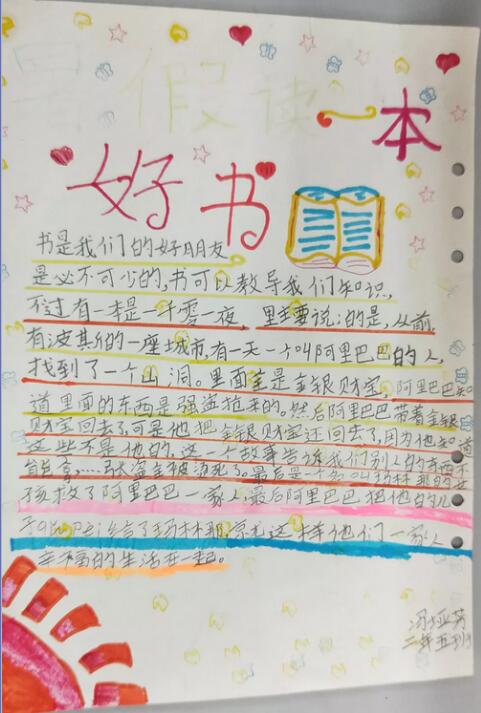 暑假读一本
好书
书是我们的好朋友
是必不可少的,书可以教导我们知识,
不过有一本是一千零一夜,里主要说的是,从前,
有波斯的一座城市,有一天一个叫阿里巴巴的人,
找到了一个山洞。里面全是金银财宝,阿里巴巴知
道里面的东西是强盗抢来的。然后阿里巴巴带着金银
财宝回去了,可是他把金银财宝还回去了,因为他知道
这些不是他的,这一个故事告诉我们别人的东西不
能拿,....强盗全被烫死了。最后是一个名叫玛林耶的女
孩救了阿里巴巴一家人,最后阿里巴巴把他的儿
子 给了玛林耶,就这样他们一家人
幸福的生活在一起。
冯 英
二年五班